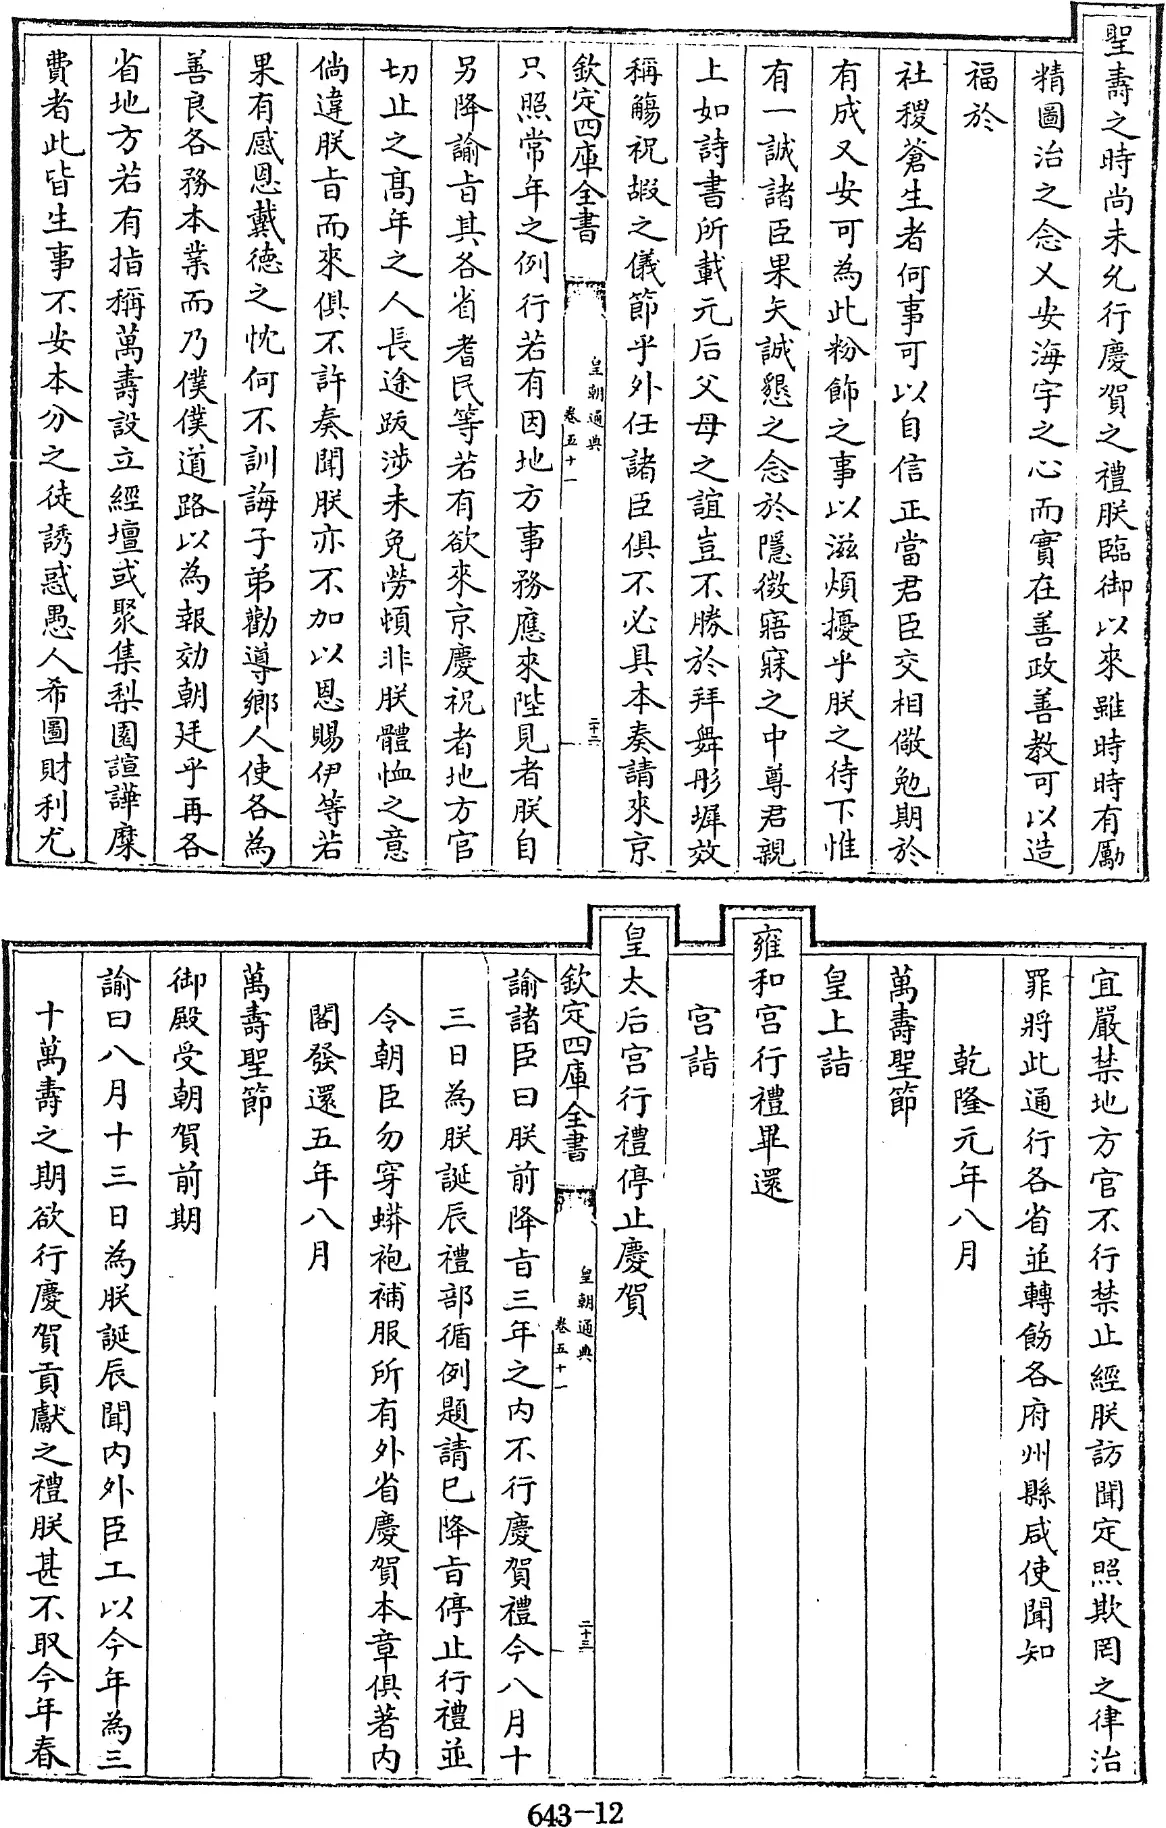 聖壽之時尚未允行慶賀之禮朕臨御以來雖時時有勵
精圖治之念乂安海宇之心而實在善政善教可以造
福於
社稷蒼生者何事可以自信正當君臣交相儆勉期於
有成又安可為此粉飾之事以滋煩擾乎朕之待下惟
有一誠諸臣果矢誠懇之念於隱微寤寐之中尊君親
上如詩書所載元后父母之誼豈不勝於拜舞彤墀效
稱觴祝嘏之儀節乎外任諸臣俱不必具本奏請來京
欽定四庫全書
皇朝通典
卷五十一
二十二
只照常年之例行若有因地方事務應來陛見者朕自
另降諭旨其各省耆民等若有欲來京慶祝者地方官
切止之高年之人長途跋涉未免勞頓非朕體恤之意
倘違朕旨而來俱不許奏聞朕亦不加以恩賜伊等若
果有感恩戴德之忱何不訓誨子弟勸導鄉人使各為
善良各務本業而乃僕僕道路以為報効朝廷乎再各
省地方若有指稱萬壽設立經壇或聚集梨園諠譁糜
費者此皆生事不安本分之徒誘惑愚人希圖財利尤
宜嚴禁地方官不行禁止經朕訪聞定照欺罔之律治
罪將此通行各省並轉飭各府州縣咸使聞知
乾隆元年八月
萬壽聖節
皇上詣
雍和宮行禮畢還
宮詣
皇太后宮行禮停止慶賀
欽定四庫全書
皇朝通典
卷五十一
二十三
諭諸臣曰朕前降旨三年之内不行慶賀禮今八月十
三日為朕誕辰禮部循例題請已降旨停止行禮並
令朝臣勿穿蟒袍補服所有外省慶賀本章俱著内
閣發還五年八月
萬壽聖節
御殿受朝賀前期
諭曰八月十三日為朕誕辰聞内外臣工以今年為三
十萬壽之期欲行慶賀貢獻之禮朕甚不取今年春
643-12